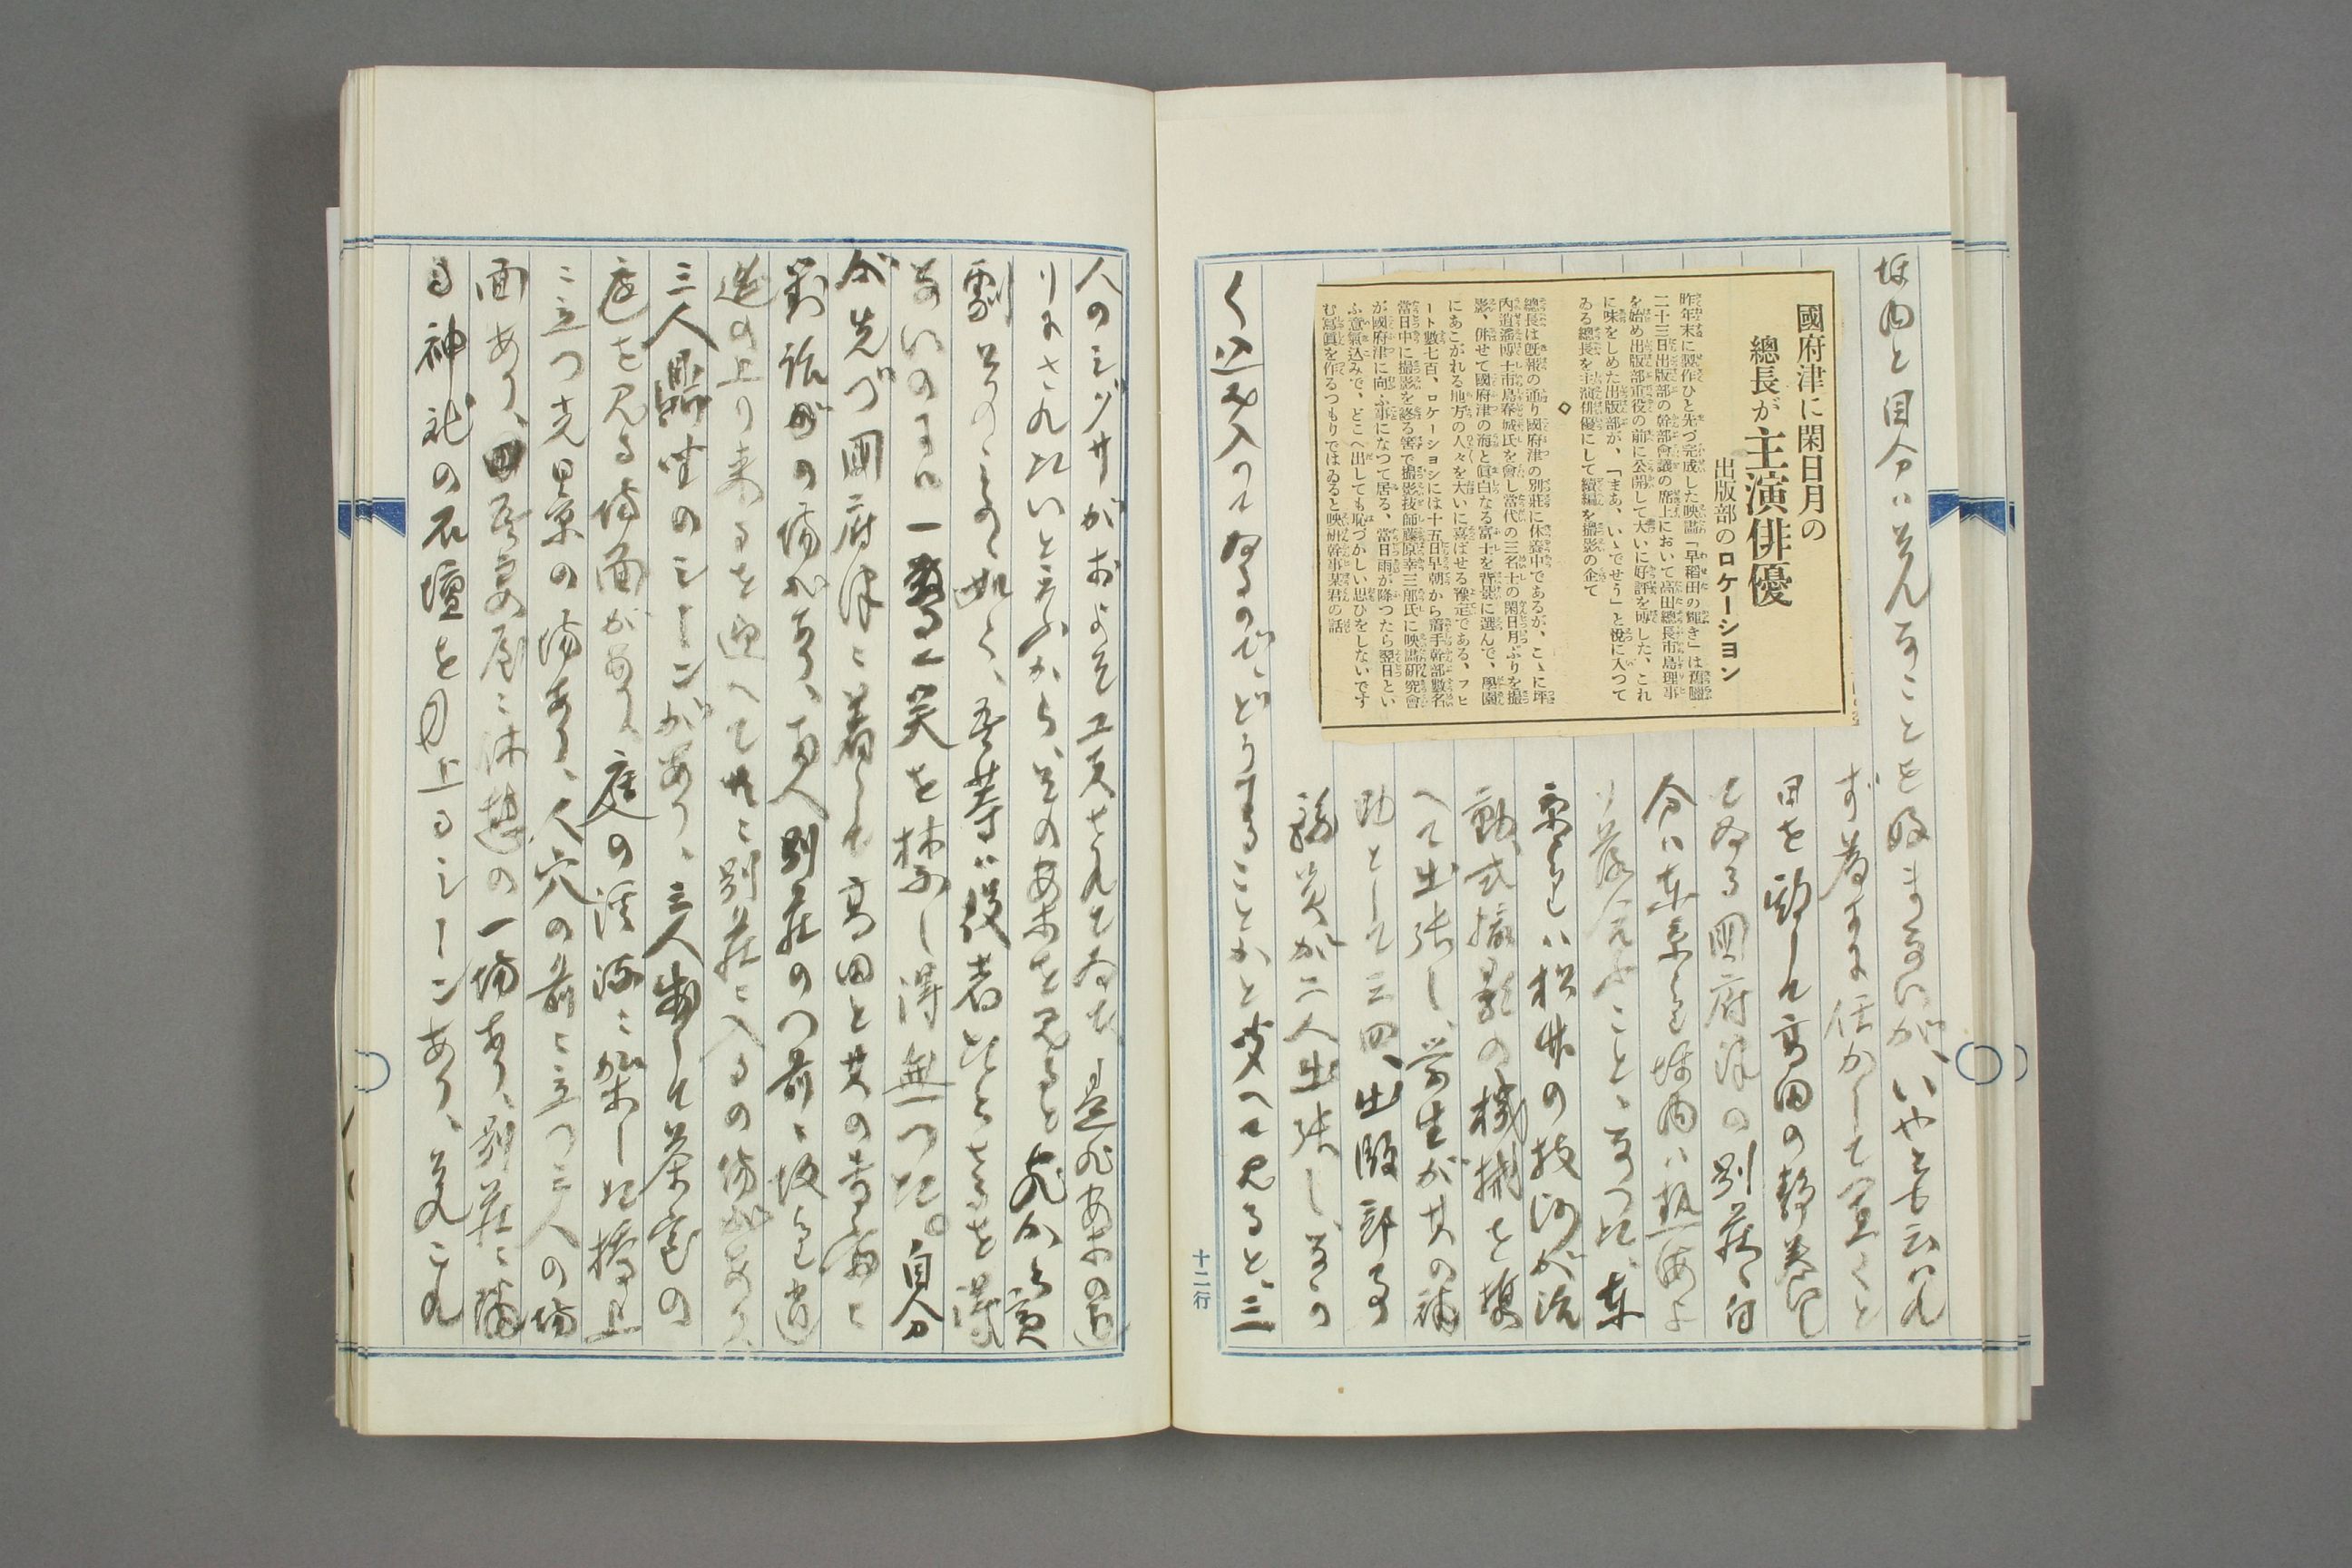 坪内と自分はそんなことを好まないが、いやとも云はれ
國府津に閑日月の
總長が主演俳優
出版部のロケーション
昨年末に製作ひと先づ完成した映畵「早稻田の輝き」は舊臘
二十三日出版部の幹部會議の席上において高田總長市島理事
を始め出版部重役の前に公開して大いに好評を博した、これ
に味をしめた出版部が、「まあ、いゝでせう」と悅に入つて
ゐる總長を主演俳優にして續編を撮影の企て
◇
總長は旣報の通り國府津の別莊に休養中であるが、こゝに坪
內逍遙博士市島春城氏を會し當代の三名士の閑日月ぶりを撮
影、併せて國府津の海と眞白なる富士を背景に選んで、學園
にあこがれる地方の人々を大いに喜ばせる豫定である、フヒ
ート數七百、ロケーションには十五日早朝から着手幹部數名
當日中に撮影を終る筈で撮影技師藤原幸三郎氏に映畵硏究會
が國府津に向ふ事になつて居る、當日雨が降つたら翌日とい
ふ意氣込みで、どこへ出しても恥づかしい思ひをしないです
む寫眞を作るつもりではゐると映硏幹事某君の話
ず為すまに任かして置くと
田を
てゐる國府津の別荘、自
分は東京から坪内は熱海よ
り落合ふことゝなつた、東
京からは松竹の技師が活
動式撮影の機械を携
へて出張し、学生が其の補
助として三四、出版部の
が二人出張し、
く込み入つてゐるので、どうすることかと考へて見ると、三
十二行
人のシグサがおよそ工夫されてゐて、
りにされたいと云ふから、その案を見ると
劇そのものゝ如く、吾等は役者
ないのには一驚一笑を禁し得無つた。自分
が先づ國府津に着して高田と其の書斎に
對話の場があり、両人別荘の門前に坂を逍
遥の上り来るを迎へて共に別荘に入るの場
三人鼎坐のシーンがあり、三人出して茶室の
庭を見る場面があり、庭の渓流に架した橋上
に立つ光景の場あり、人穴の前に立つ三人の場
面あり、吾妻屋に休憩の一場あり、別荘に隣
る神社の石壇を上るシーンあり、